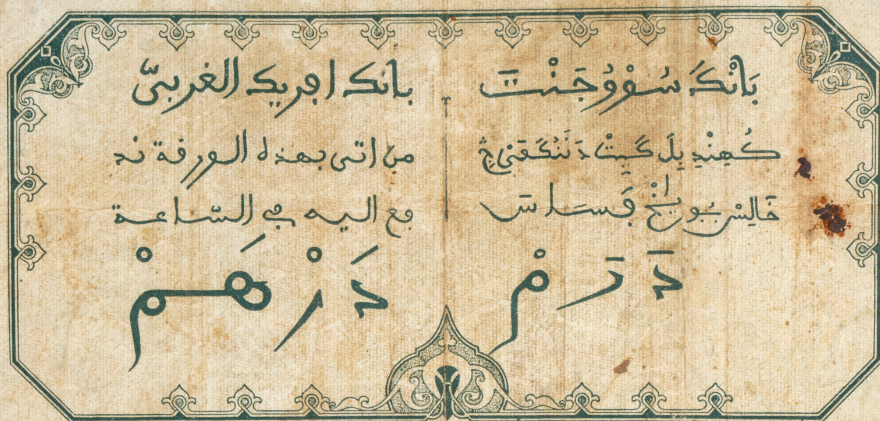 بَانْكَ سُوْوُجَنْتَ
كُهِنْدِ بِلَ
خَالِسْ
دَرَمْ
بانك افريك الغربيّ
من اتى بهذه الورقة ند
فع اليه في السّاعة
دَرْهَمْ